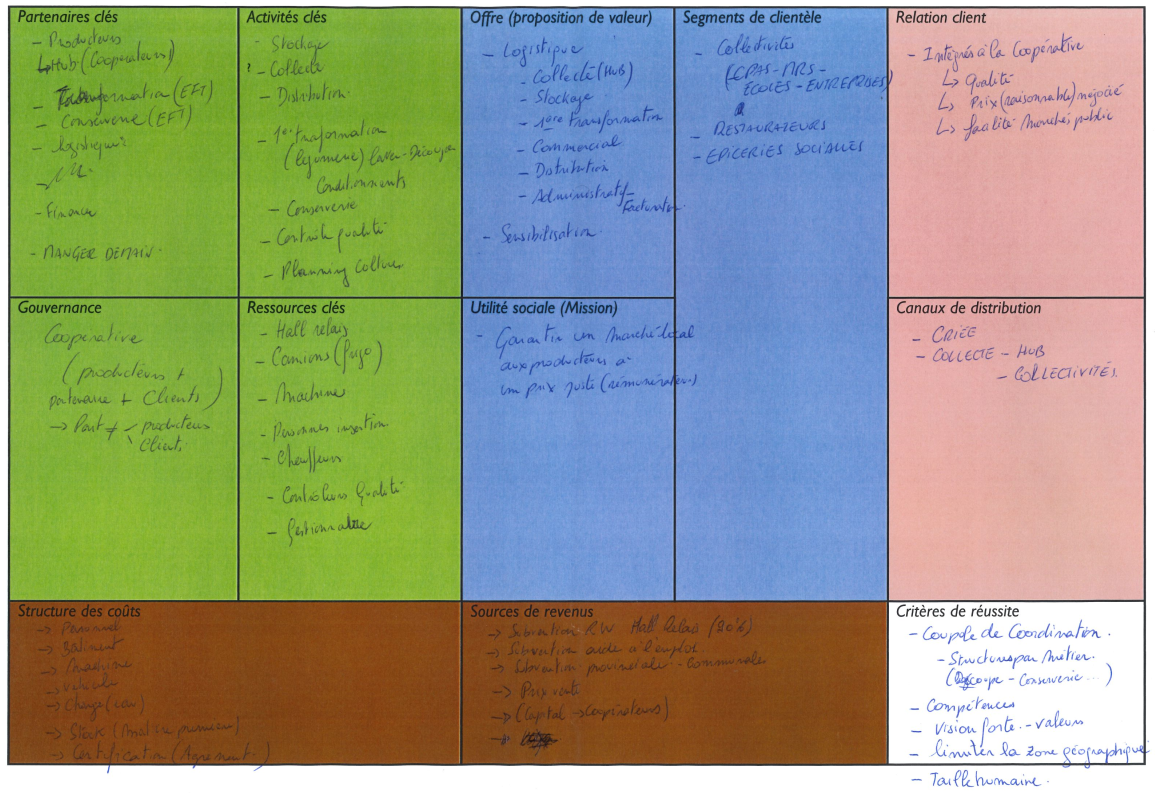 Partenaires clés
- Producteurs
↳ Hub (Coopérateurs)
- Transformation (EFT)
- Conserverie (EFT)
- Logistique
- Finance
- MANGER DEMAIN.
Activités clés
- Stockage
- Collecte
- Distribution.
- 1ère transformation
(légumerie) laver - Découper
Conditionnements
- Conserverie
- Contrôle qualité
- Planning Culture
Offre (proposition de valeur)
- Logistique
- Collecte (HUB)
- Stockage
- 1ère transformation
- Commercial
- Distribution
- Administratif -
Facturation.
- Sensibilisation.
Segments de clientèle
- Collectivités
(CPAS - MRS -
ECOLES - ENTREPRISES)
- RESTAURATEURS
- EPICERIES SOCIALES
Relation client
- Intégrés à la Coopérative
↳ Qualité
↳ Prix (raisonnable) négocié
↳ facilité Marchés public
Gouvernance
Coopérative
(producteurs +
partenaire + Clients)
→ Part ≠ producteurs
Client.
Ressources clés
- Hall relais
- Camions (frigo)
- Machine
- Personnes insertion.
- Chauffeurs
- Contrôleurs Qualité
- Gestionnaire
Utilité sociale (Mission)
- Garantir un marché local
aux producteurs à
un prix juste (rémunérateur)
Canaux de distribution
- CRIÉE
- COLLECTE - HUB
- COLLECTIVITÉS.
Structure des coûts
→ Personnel
→ Bâtiment
→ Machine
→ Véhicule
→ Charge (eau)
→ Stock (Matière première)
→ Certification (Agrement)
Sources de revenus
→ Subvention RW Hall Relais (80%)
→ Subvention aide à l'emploi
→ Subvention provinciale - Communale
→ Prix vente
→ (Capital → Coopérateurs)
Critères de réussite
- Coupole de Coordination.
- Structures par Métier.
(Découpe - Conserverie ...)
- Compétences
- Vision forte - valeurs
- limiter la zone géographique
- Taille humaine.